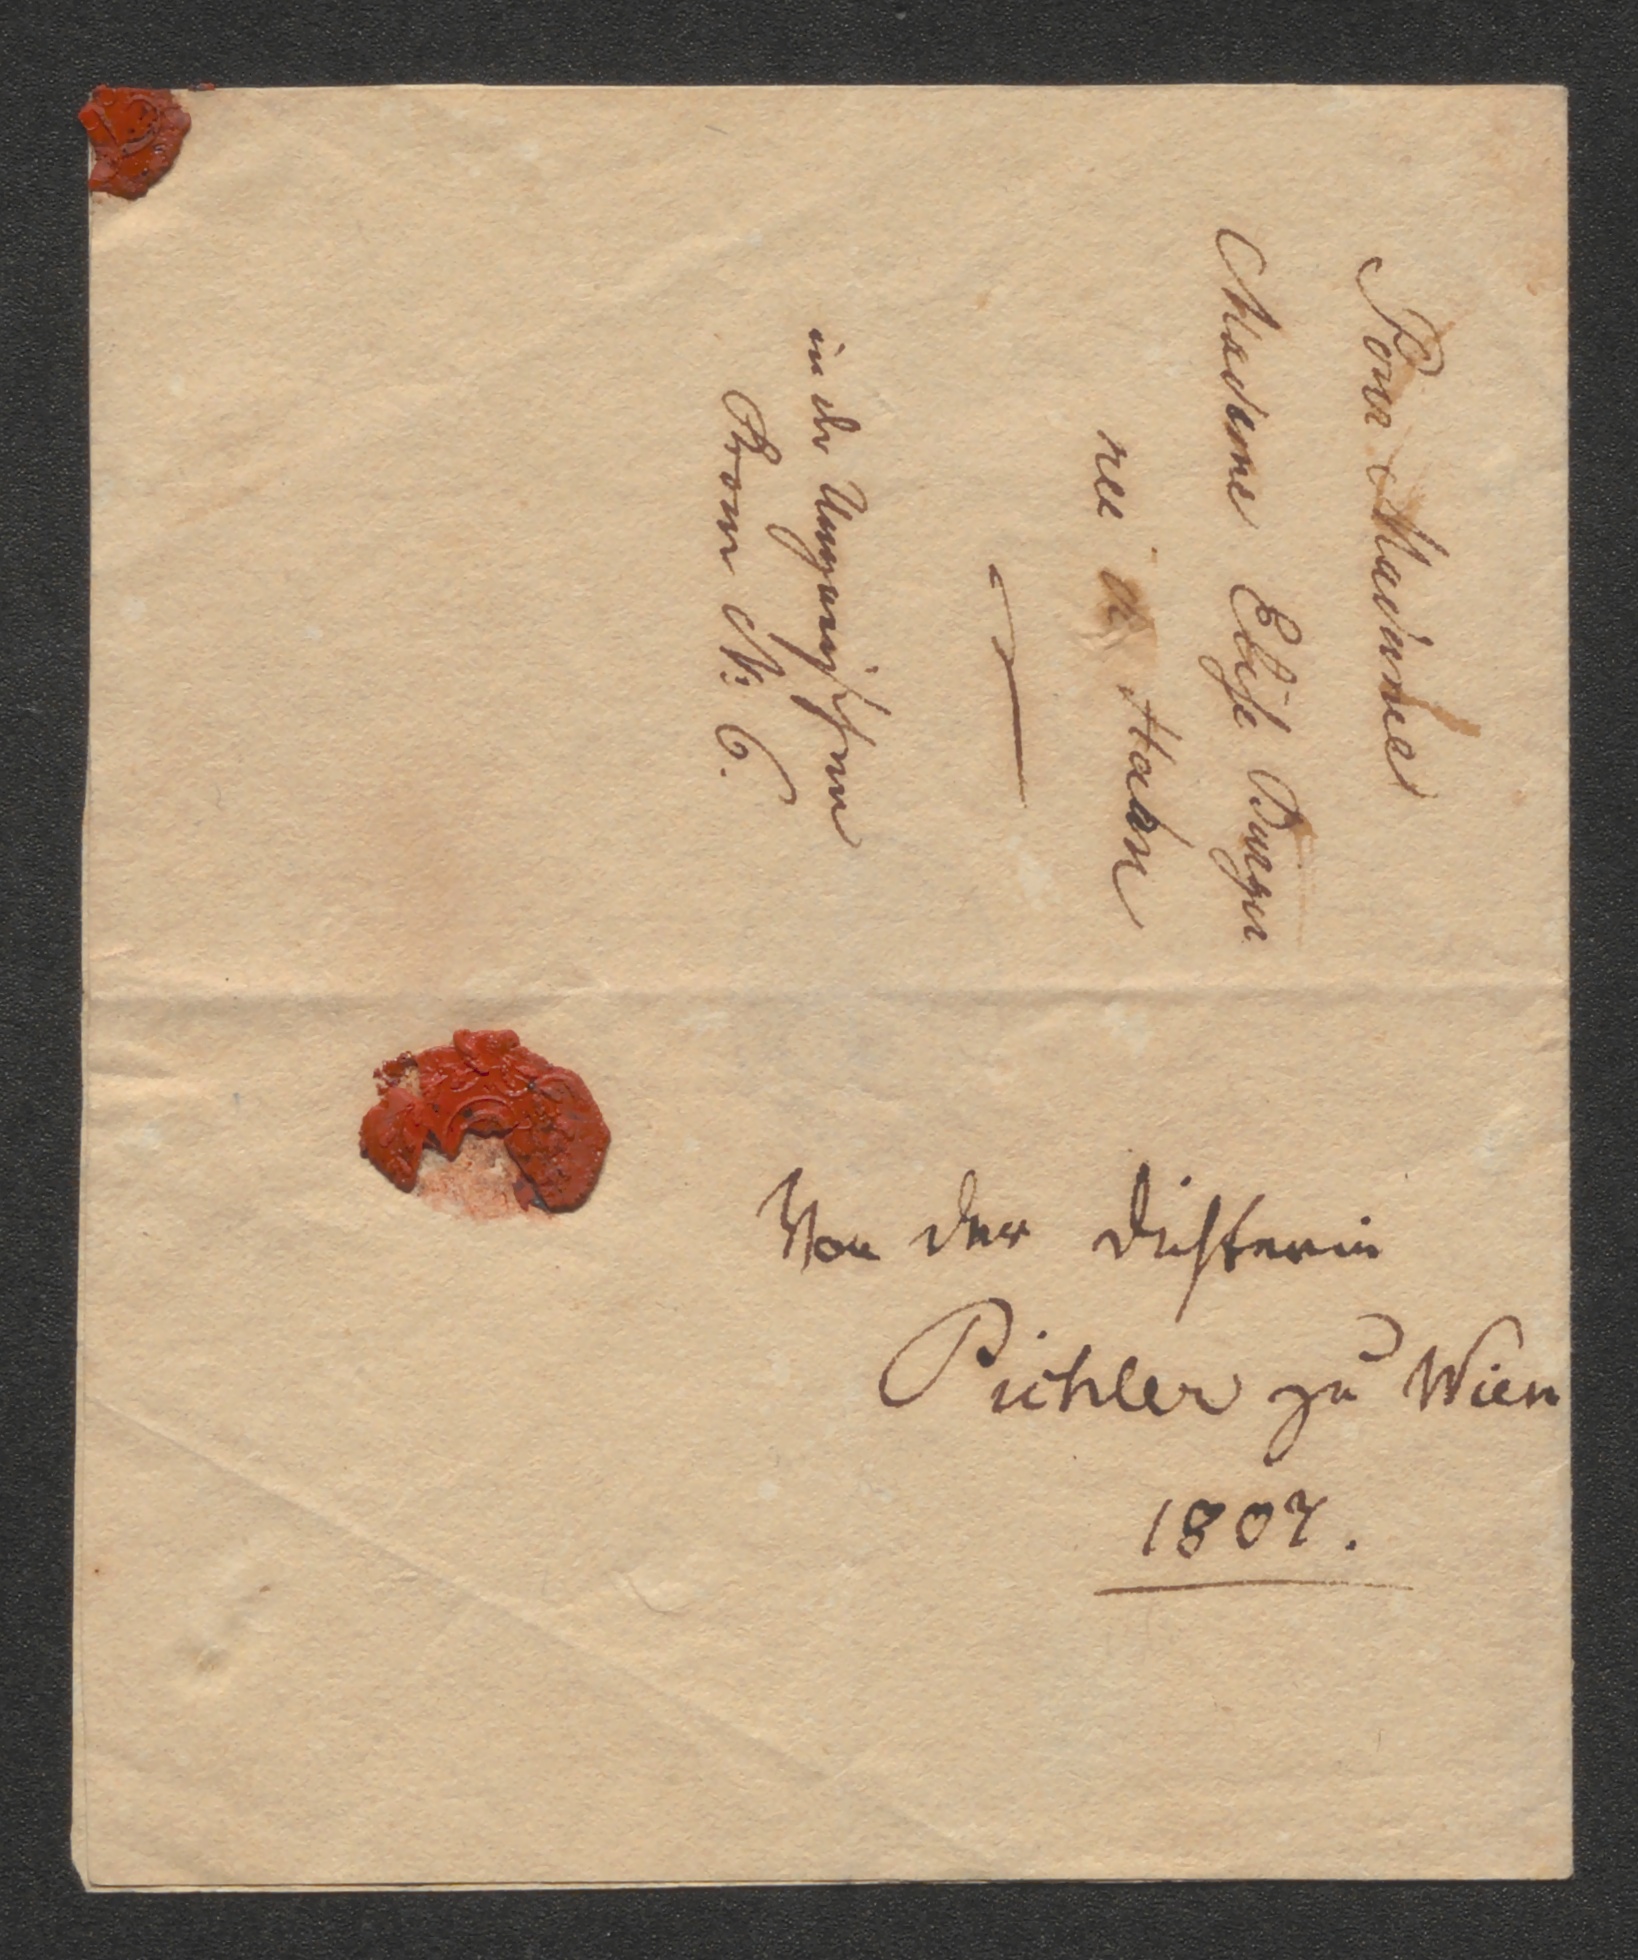 Pour Madame
Madame Elise Bürger
née de Hahn
in der Ungarischen
Krone N: 6.
Von der Dichterin
Pichler zu Wien
1807.